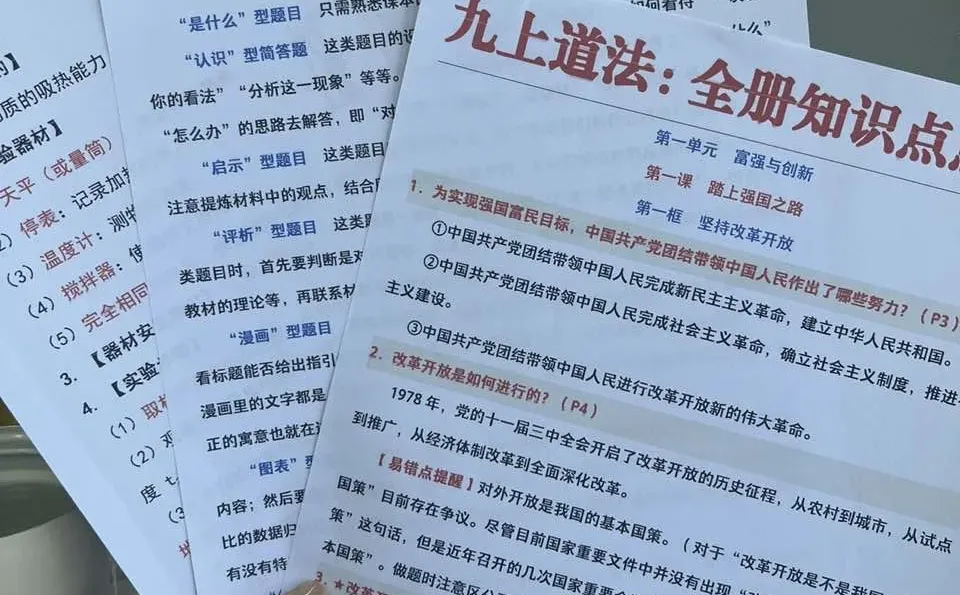 的】
质的吸热能力
验器材】
天平（或量筒）
停表：记录加热
（3）温度计：测物
（4）搅拌器：使
（5）完全相同
3. 【器材安
4. 【实验
（1）取相
（2）观
度
“是什么”型题目 只需熟悉课本
如何看待
“认识”型简答题 这类题目的设
什么”
你的看法”“分析这一现象”等等。
“怎么办”的思路去解答，即“对
“启示”型题目 这类题目
注意提炼材料中的观点，结合
“评析”型题目 这类
类题目时，首先要判断是对
教材的理论等，再联系材
“漫画”型题目
看标题能否给出指引
漫画里的文字都是
正的寓意也就在
“图表”型
内容；然后要
比的数据归
有没有特
九上道法：全册知识点
第一单元 富强与创新
第一课 踏上强国之路
第一框 坚持改革开放
1. 为实现强国富民目标，中国共产党团结带领中国人民作出了哪些努力？（P3）
①中国共产党团结带领中国人民完成新民主主义革命，建立中华人民共和国。
②中国共产党团结带领中国人民完成社会主义革命，确立社会主义制度，推进
主义建设。
③中国共产党团结带领中国人民进行改革开放新的伟大革命。
2. 改革开放是如何进行的？（P4）
1978年，党的十一届三中全会开启了改革开放的历史征程，从农村到城市，从试点
到推广，从经济体制改革到全面深化改革。
【易错点提醒】对外开放是我国的基本国策。（对于“改革开放是不是我国
国策”目前存在争议。尽管目前国家重要文件中并没有出现
策”这句话，但是近年召开的几次国家重要会
本国策”。做题时注意区分
3. ★改革开